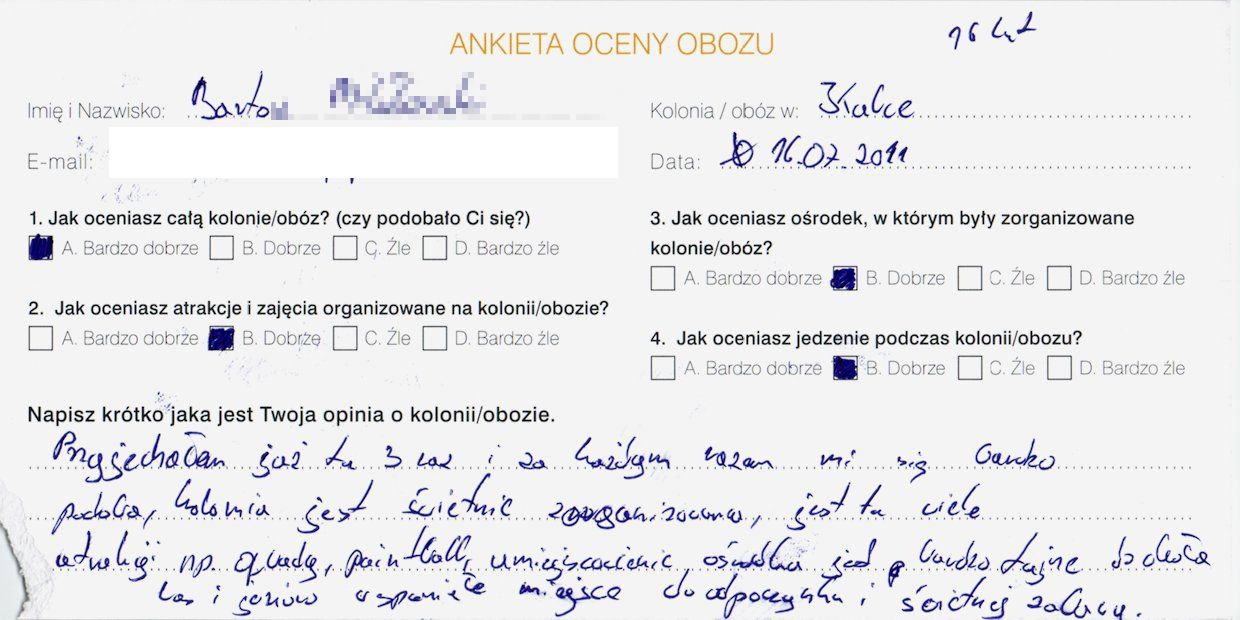 ANKIETA OCENY OBOZU
16 lat
Imię i Nazwisko: Bartos
Kolonia / obóz w: Skalce
E-mail:
Data: 16.07.2011
1. Jak oceniasz całą kolonie/obóz? (czy podobało Ci się?)
A. Bardzo dobrze B. Dobrze C. Źle D. Bardzo źle
2. Jak oceniasz atrakcje i zajęcia organizowane na kolonii/obozie?
A. Bardzo dobrze B. Dobrze C. Źle D. Bardzo źle
3. Jak oceniasz ośrodek, w którym były zorganizowane
kolonie/obóz?
A. Bardzo dobrze B. Dobrze C. Źle D. Bardzo źle
4. Jak oceniasz jedzenie podczas kolonii/obozu?
A. Bardzo dobrze B. Dobrze C. Źle D. Bardzo źle
Napisz krótko jaka jest Twoja opinia o kolonii/obozie.
Przyjechałam już tu 3 raz i za każdym razem mi się bardzo
podoba, kolonia jest świetnie zorganizowana, jest tu wiele
atrakcji np. quady, paintball, umiejscowienie ośrodka jest bardzo fajne dookoła
las i jezioro wspaniałe miejsce do odpoczynku i świetnej zabawy.